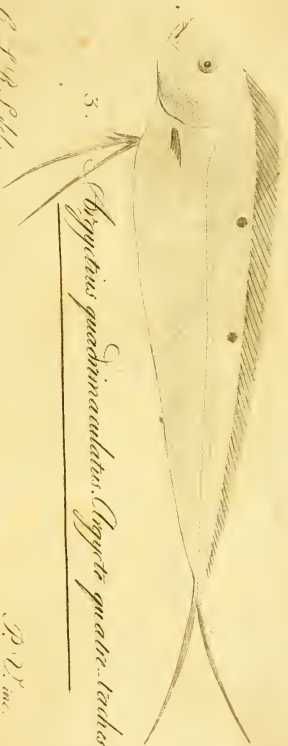 3.
Argyctius quadrimaculatus. Argycte quatre-taches
C. S. R. del.